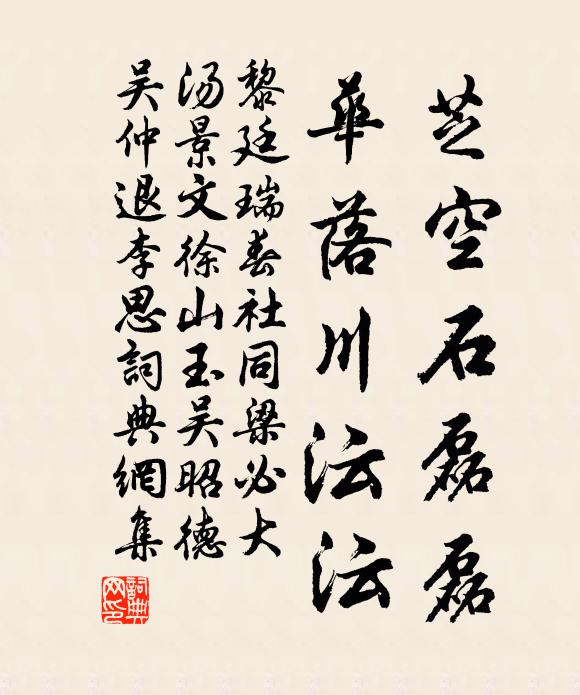 芝空石磊磊
華落川沄沄
黎廷瑞春社同梁必大
汤景文徐山玉吴昭德
吴仲退李思詞典網集
詞典網印